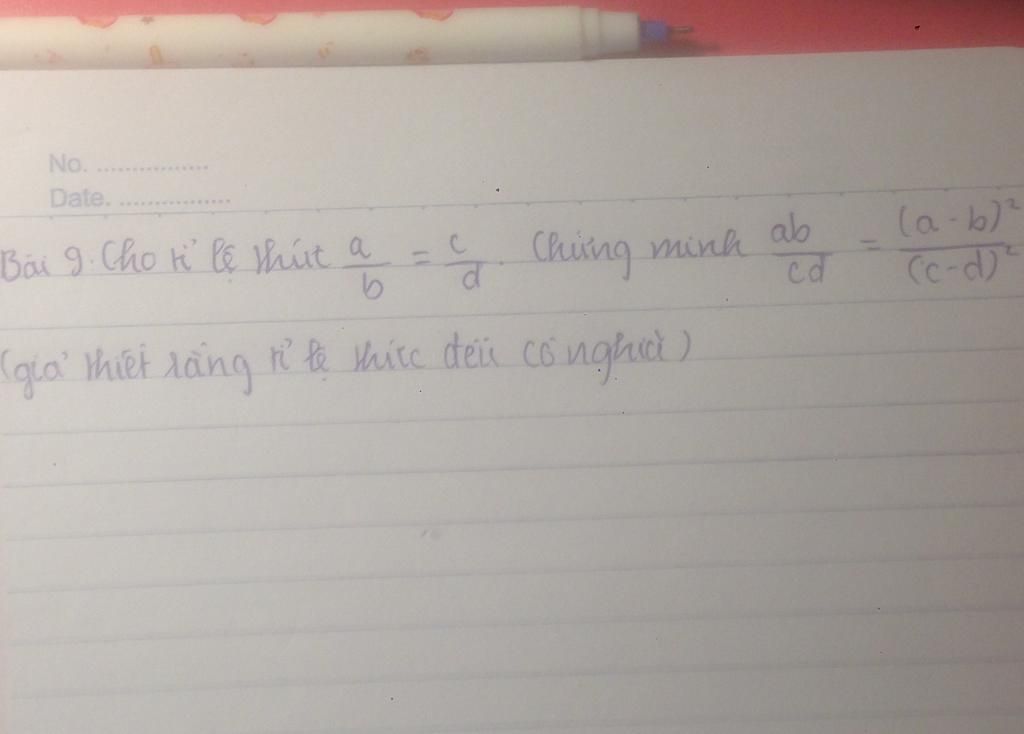 No. ................
Date. ................
Bài 9. Cho tỉ lệ thức a/b = c/d. Chứng minh ab/cd = (a-b)²/(c-d)²
(giả thiết rằng tỉ lệ thức đều có nghĩa)